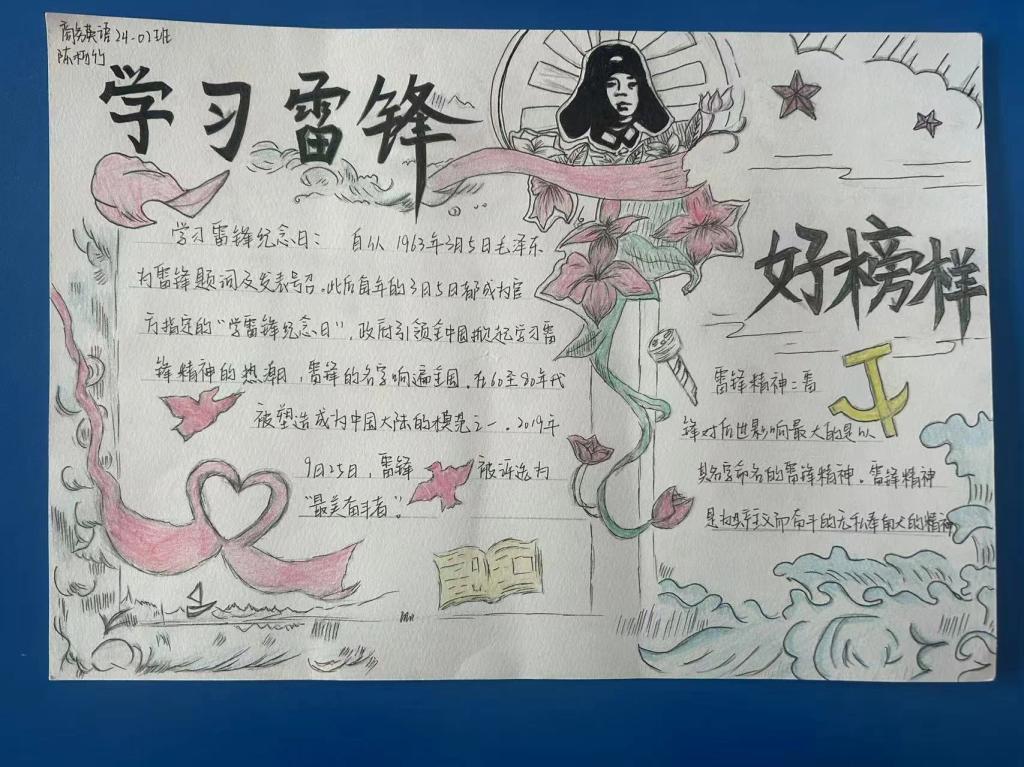 商务英语24-02班
陈
学习雷锋
好榜样
学习雷锋纪念日: 自从1963年3月5日毛泽东
为雷锋题词及发表号召,此后每年的3月5日都成为官
方指定的“学雷锋纪念日”,政府引领全中国掀起学习雷
锋精神的热潮,雷锋的名字响遍全国,在60至80年代
被塑造成为中国大陆的模范之一。2019年
9月25日,雷锋 被评选为
“最美奋斗者”。
雷锋精神:雷
锋对后世影响最大的是以
其名字命名的雷锋精神。雷锋精神
是为共产主义而奋斗的无私奉献的精神